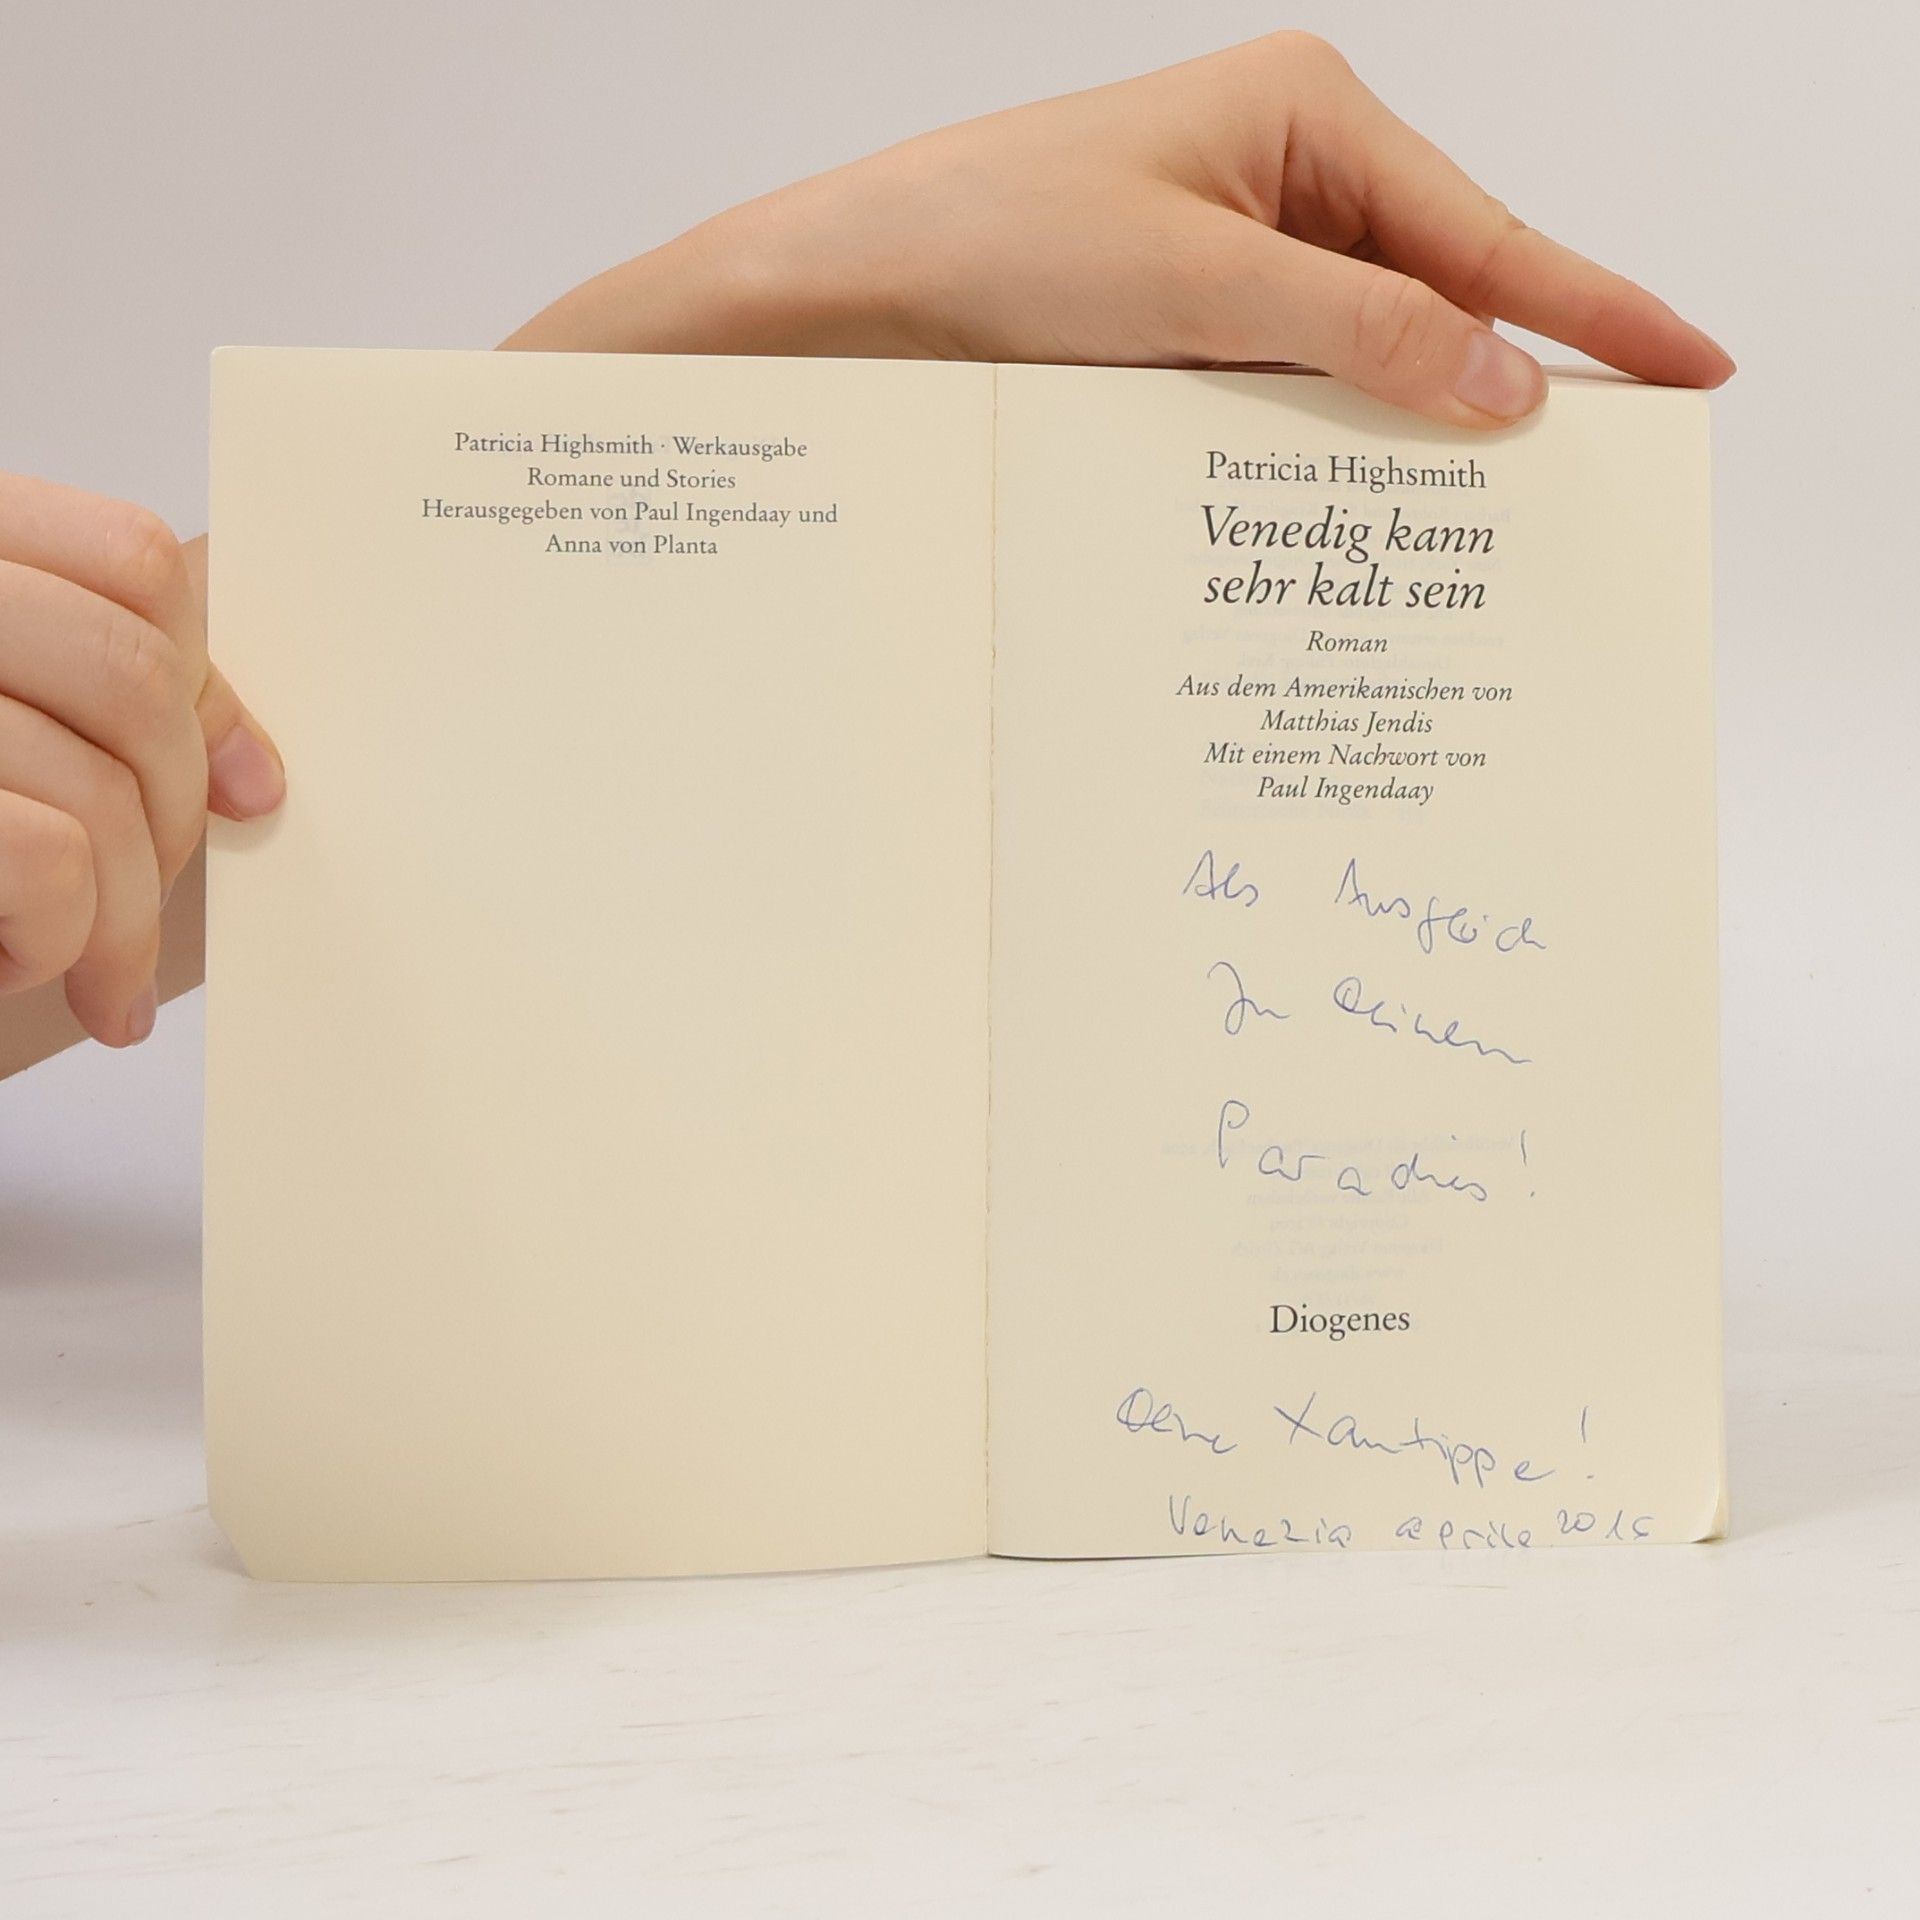 Patricia Highsmith · Werkausgabe
Romane und Stories
Herausgegeben von Paul Ingendaay und
Anna von Planta
Patricia Highsmith
Venedig kann
sehr kalt sein
Roman
Aus dem Amerikanischen von
Matthias Jendis
Mit einem Nachwort von
Paul Ingendaay
Als Ausgleich
zu Deinem
Paradies!
Diogenes
Deine Xantippe!
Venezia aprile